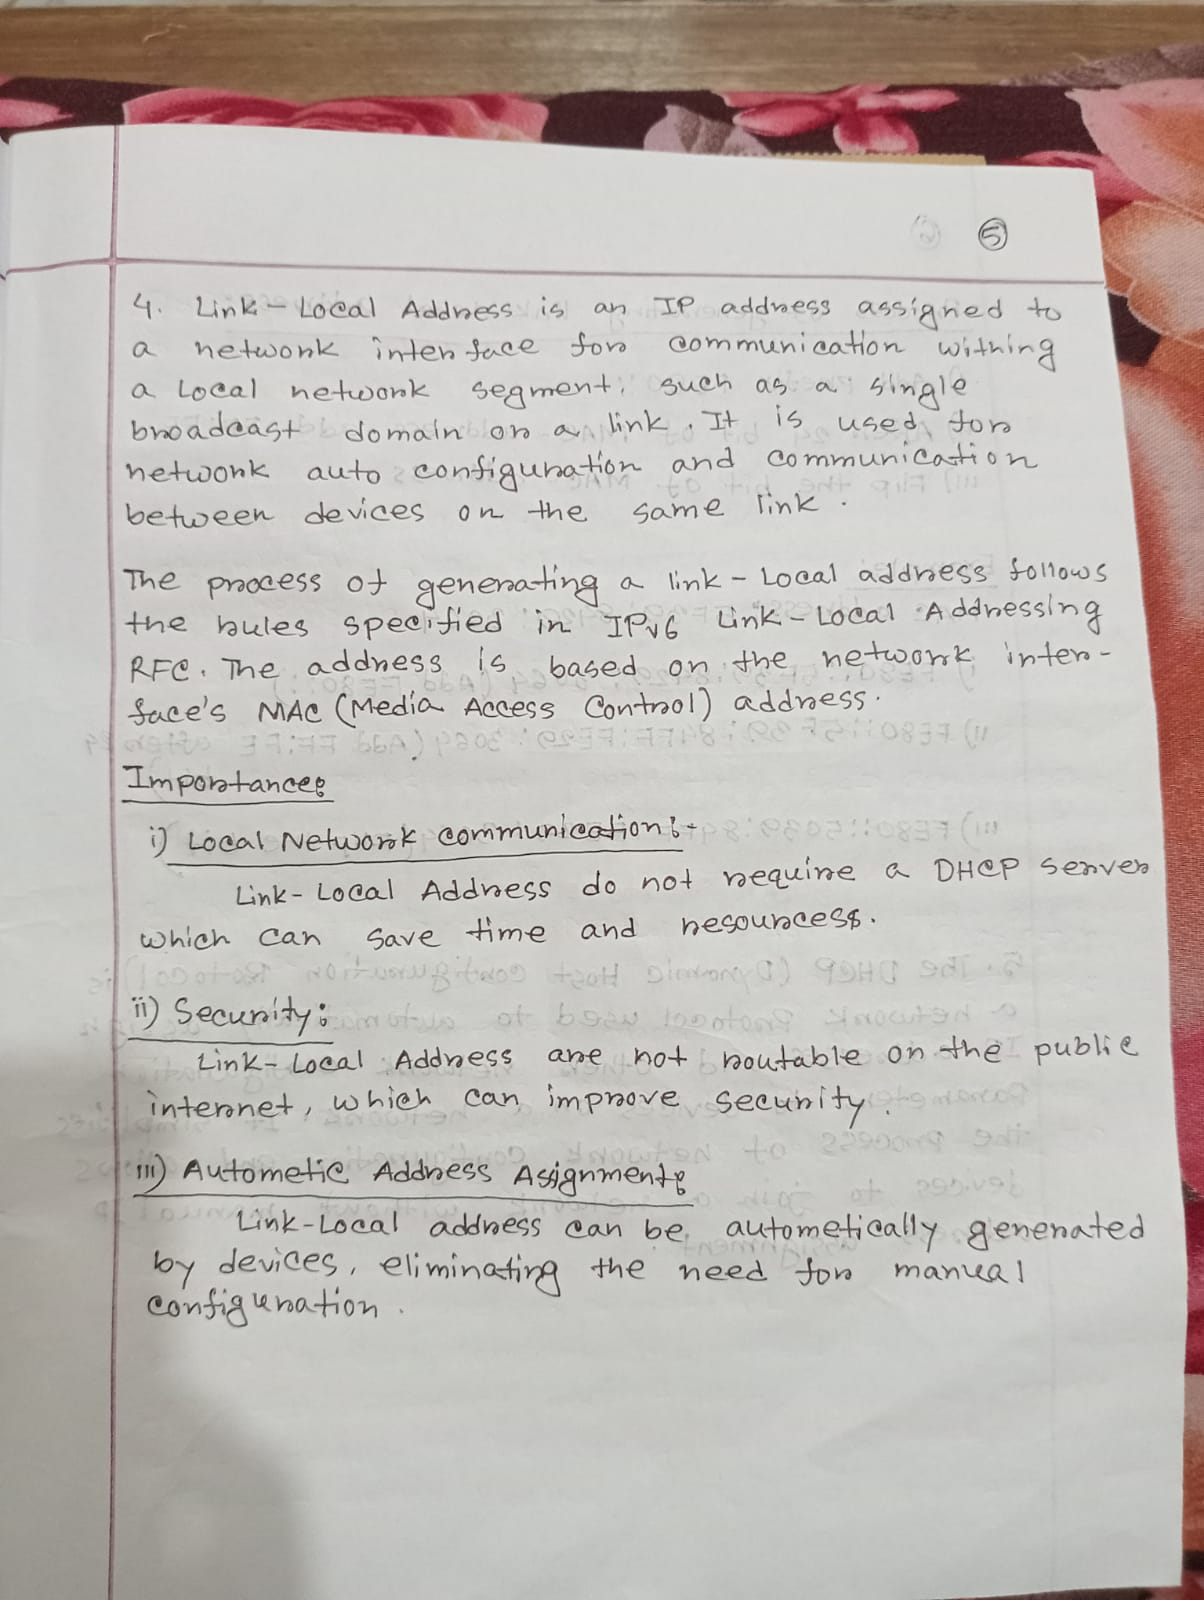 5
4. Link-Local Address is an IP address assigned to
a network interface for communication withing
a Local network segment, such as a single
broadcast domain or a link. It is used for
network auto configuration and communication
between devices on the same link.
The process of generating a link-Local address follows
the rules specified in IPv6 Link-Local Addressing
RFC. The address is based on the network inter-
face's MAC (Media Access Control) address.
Importance:
i) Local Network communication:-
Link-Local Address do not require a DHCP server
which can save time and resourcess.
ii) Security:
Link-Local Address are not routable on the public
internet, which can improve security.
iii) Autometic Address Assignment:
Link-Local address can be autometically generated
by devices, eliminating the need for manual
configuration.